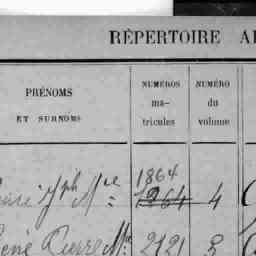 RÉPERTOIRE AL
PRÉNOMS
ET SURNOMS
NUMÉROS
ma-
tricules
NUMÉRO
du
volume
1864
Jph Mie 1264 4
René Pierre Mie 2121 3